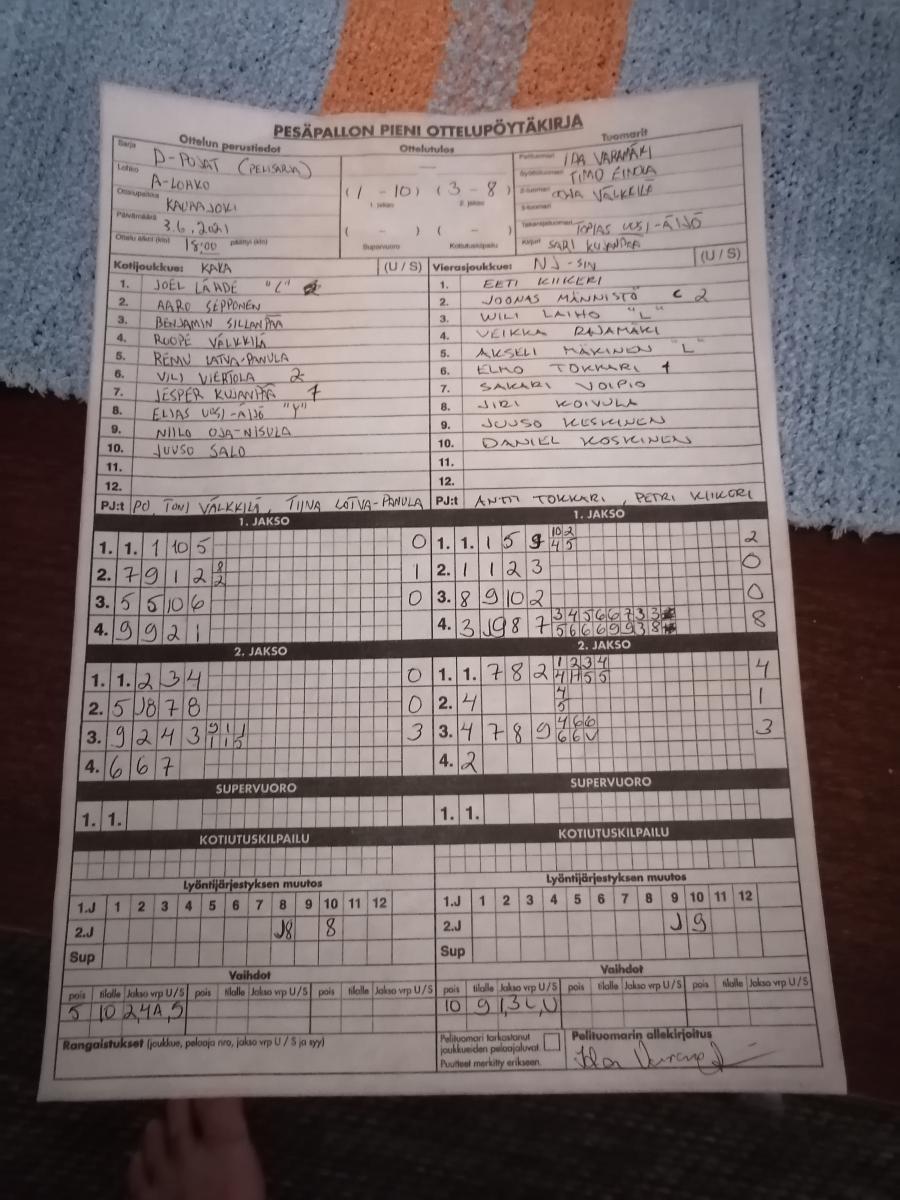 PESÄPALLON PIENI OTTELUPÖYTÄKIRJA
Ottelun perustiedot Ottelutulos Tuomarit
Sarja D-POJAT (PELISARJA)
Lohko A-LOHKO
Ottelupaikka KAUHAJOKI
Päivämäärä 3.6.2021
Ottelu alkoi (klo) 18:00 päättyi (klo)
(1 - 10) (3 - 8)
1. jakso 2. jakso
( - ) ( - )
Supervuoro Kotiutuskilpailu
Pelituomari IDA VARAMÄKI
Syöttötuomari TIMO
2-tuomari VÄLKKILÄ
3-tuomari
Takarajatuomari TOPIAS UUSI-ÄIJÖ
Kirjuri SARI KUJANPÄÄ
Kotijoukkue: KAKA (U / S)
1. JOEL LÄHDE "L"
2. AARO SEPPONEN
3. BENJAMIN SILLANPÄÄ
4. ROOPE VÄLKKILÄ
5. REMU LATVA-PANULA
6. VILI VIERTOLA 2
7. JESPER KUJANPÄÄ 1
8. ELIAS UUSI-ÄIJÖ "Y"
9. NIILO OJA-NISULA
10. JUUSO SALO
11.
12.
PJ:t PO, TONI VÄLKKILÄ, TIINA LATVA-PANULA
Vierasjoukkue: NJ-SIN (U / S)
1. EETI KIIKERI
2. JOONAS MÄNNISTÖ C 2
3. WILI LAIHO "L"
4. VEIKKA RAJAMÄKI
5. AKSELI MÄKINEN "L"
6. ELMO TOKKARI 1
7. SAKARI VOIPIO
8. JIRI KOIVULA
9. JUUSO KESKINEN
10. DANIEL KOSKINEN
11.
12.
PJ:t ANTTI TOKKARI, PETRI KIIKERI
1. JAKSO
1. 1. 1 10 5 0
2. 7 9 1 2 8 1
2
3. 5 5 10 6 0
4. 9 9 2 1
1. JAKSO
10 2
1. 1. 1 5 9 4 5 2
2. 1 1 2 3 0
3. 8 9 10 2 0
3 4 5 6 6 7 3 3
4. 3 J9 8 7 5 6 6 6 9 9 3 8 8
2. JAKSO
1. 1. 2 3 4 0
2. 5 J8 7 8 0
3. 9 2 4 3 9 1 1 3
1 1 5
4. 6 6 7
2. JAKSO
1 2 3 4
1. 1. 7 8 2 4 4 5 5 4
2. 4 4 1
5
3. 4 7 8 9 4 6 6 3
6 6 V
4. 2
SUPERVUORO
1. 1.
SUPERVUORO
1. 1.
KOTIUTUSKILPAILU
KOTIUTUSKILPAILU
Lyöntijärjestyksen muutos
1.J 1 2 3 4 5 6 7 8 9 10 11 12
2.J J8 8
Sup
Lyöntijärjestyksen muutos
1.J 1 2 3 4 5 6 7 8 9 10 11 12
2.J J 9
Sup
Vaihdot
pois tilalle Jakso vrp U/S pois tilalle Jakso vrp U/S pois tilalle Jakso vrp U/S
5 10 2,4A,S
Vaihdot
pois tilalle Jakso vrp U/S pois tilalle Jakso vrp U/S pois tilalle Jakso vrp U/S
10 9
Rangaistukset (joukkue, pelaaja nro, jakso vrp U / S ja syy)
Pelituomari tarkastanut
joukkueiden pelaajaluvat.
Puutteet merkitty erikseen.
Pelituomarin allekirjoitus